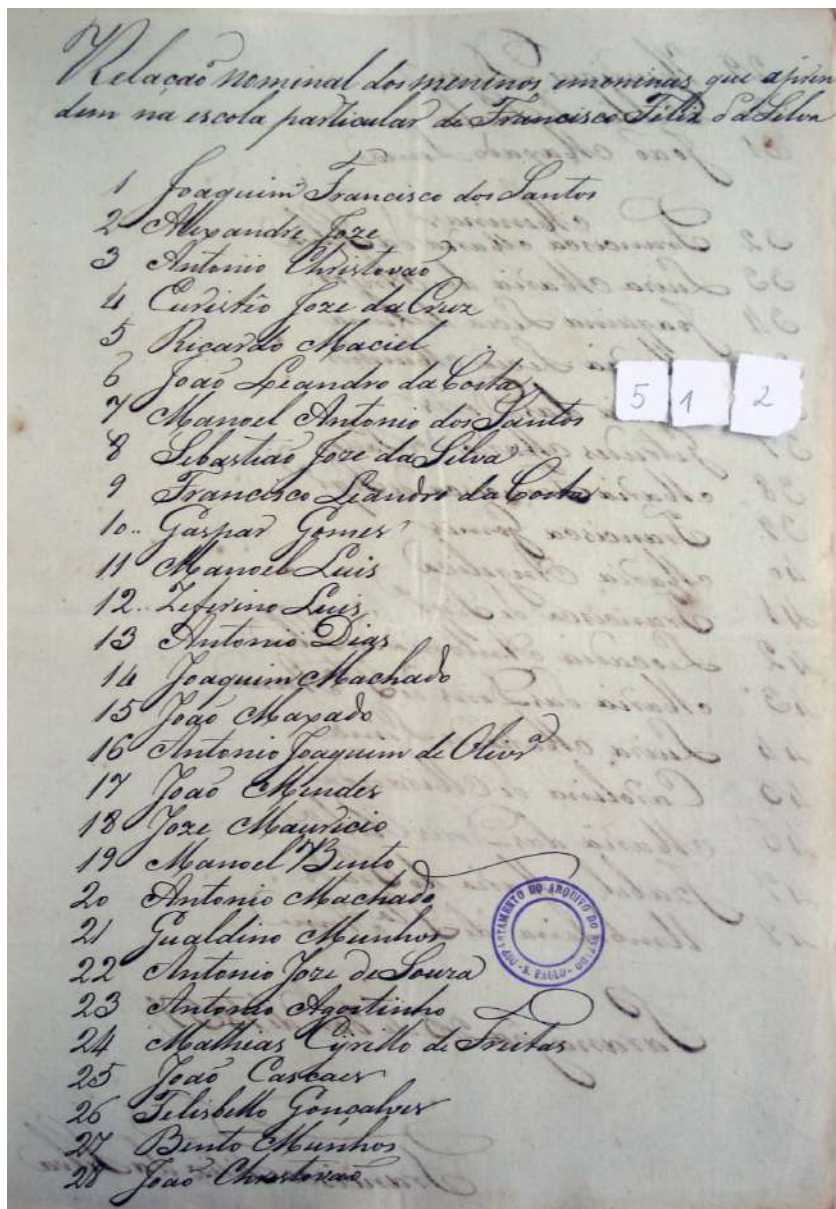 Relação nominal dos meninos emeninas que apren
dem na escola particular de Francisco Felix d'a Silva
1 Joaquim Francisco dos Santos
2 Alexandre Joze
3 Antonio Christovão
4 Joze da Cruz
5 Ricardo Maciel
6 João Leandro da Costa
7 Manoel Antonio dos Santos
5 1 2
8 Sebastião Joze da Silva
9 Francisco Leandro da Costa
10.. Gaspar Gomes
11 Manoel Luis
12.. Zeferino Luis
13 Antonio Dias
14 Joaquim Machado
15 João Maxado
16 Antonio Joaquim de Olivrª
17 João Mendes
18 Joze Mauricio
19 Manoel Bento
20 Antonio Machado
21 Gualdino Munhos
22 Antonio Joze de Souza
23 Antonio Agostinho
24 Mathias Cyrillo de Freitas
25 João Cascaes
26 Felisbello Gonçalves
27 Bento Munhos
28 João Christovão
DEPARTAMENTO DO ARQUIVO DO ESTADO - S. PAULO -